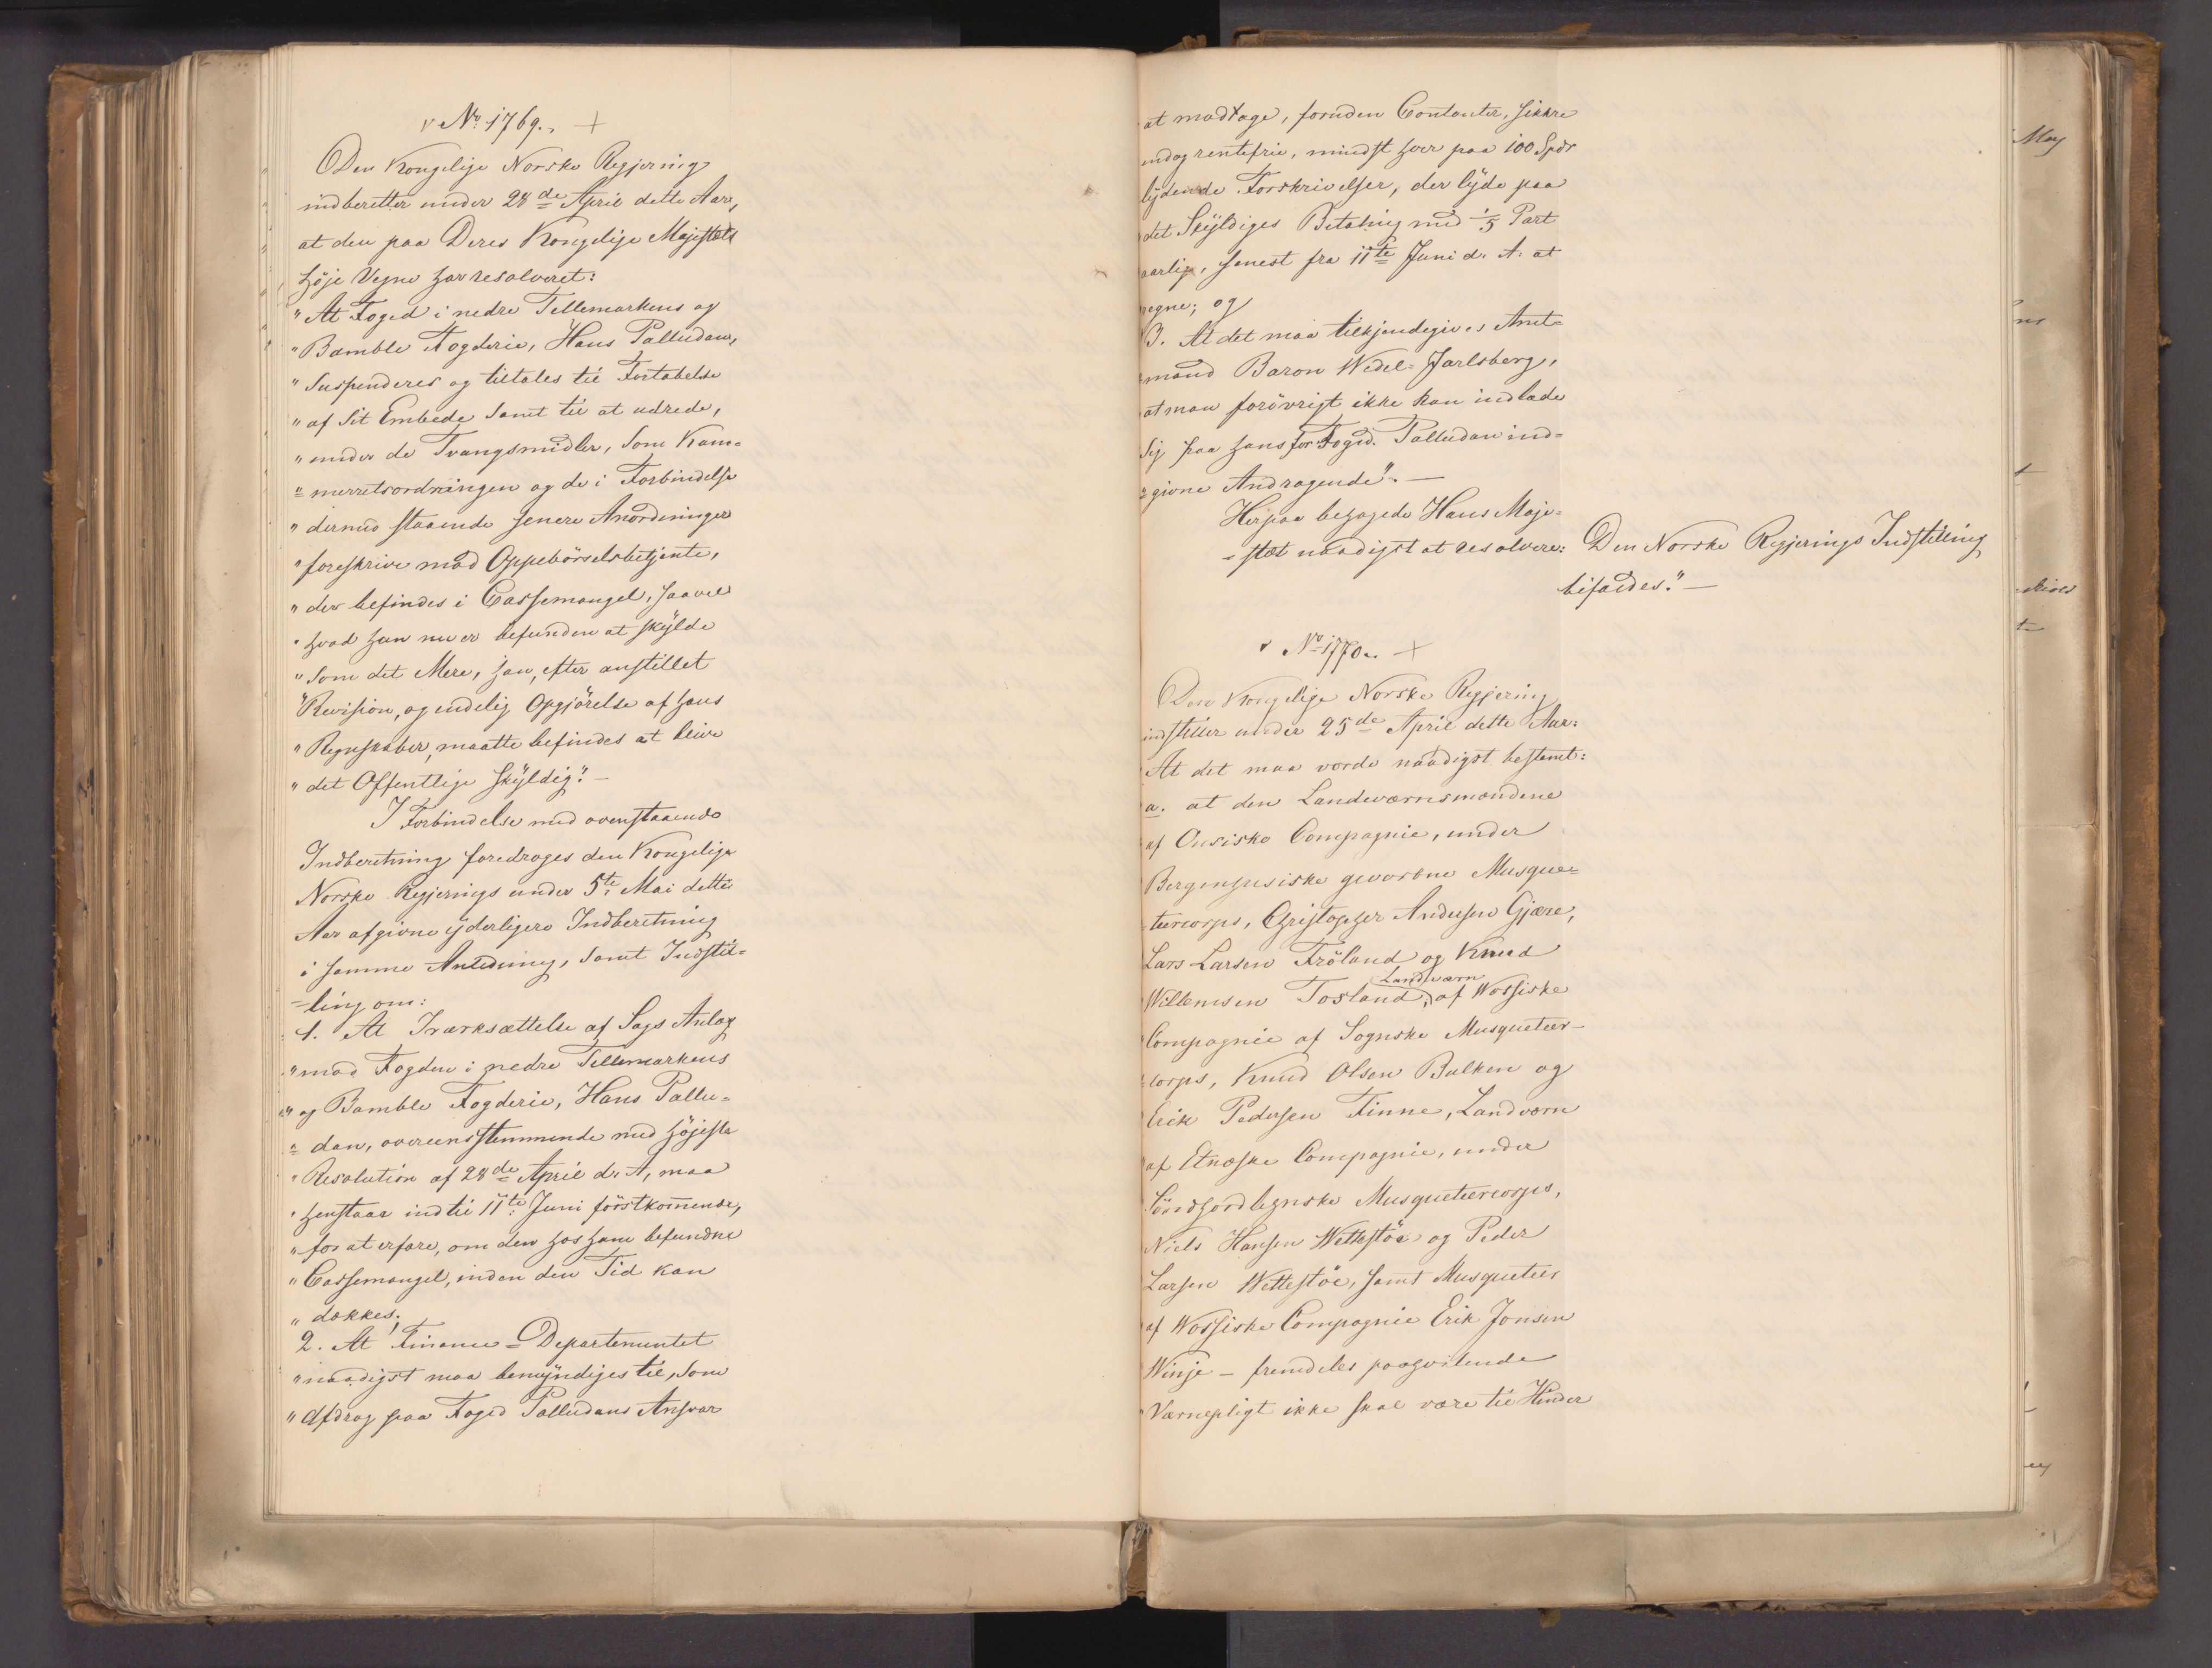 v No 1769. +
Den Kongelige Norske Regjering
indberetter under 28de April dette Aar,
at den paa Deres Kongelige Majestæts
höje Vegne har resolveret:
"At Foged i nedre Tellemarkens og
"Bamble Fogderie, Hans Palludan,
"Suspenderes og tiltales til Fortabelse
"af Sit Embede samt til at udrede,
"under de Tvangsmidler, Som Kam=
"=merretsordningen og de i Forbindelse
"dermed staaende senere Anordninger
"foreskrive mod Oppebörselsbetjente,
"der befindes i Cassemangel, saavel
"hvad han nu er befunden at skÿlde
"Som det Mere, han, efter anstillet
"Revision, og endelig Opgjörelse af hans
"Regnskaber, maatte befindes at blive
"det Offentlige skÿldig". –
I Forbindelse med ovenstaaende
Indberetning foredroges den Kongelige
Norske Regjerings under 5te Mai dette
Aar afgivne ÿderligere Indberetning
i samme Anledning, samt Indstil=
=ling om:
1. At Iværksættelse af Sags Anlæg
"mod Fogden i nedre Tellemarkens
"og Bamble Fogderie, Hans Pallu=
"=dan, overeensstemmende med höjeste
"Resolution af 28de April d. A, maa
"henstaae indtil 11te Juni förstkom̅ende,
"for at erfare, om den hos ham befundne
"Cassemangel, inden den Tid kan
"dækkes;
2. At Finance=Departementet
"naadigst maa bemÿndiges til, Som
"Afdrag paa Foged Palludans Ansvar
at modtage, foruden Contanter, sikkre
endog rentefrie, mindst hver paa 100 Spdr
lÿdende Forskrivelser, der lÿde paa
det Skÿldiges Betaling med 1/5 Part
aarlig, senest fra 11te Juni d. A. at
regne; og
3. At det maa tilkjendegives Amt=
=mand Baron Wedel=Jarlsberg,
at man forövrigt ikke kan indlade
sig paa hans for Foged Palludan ind=
=givne Andragende". –
Herpaa behagede Hans Maje=
=stæt naadigst at resolvere: Den Norske Regjerings Indstilling
bifaldes". –
v No 1770. +
Den Kongelige Norske Regjering
indstiller under 25de April dette Aar:
At det maa vorde naadigst bestemt:
a. at den Landeværnsmændene
af Ousiske Compagnie, under
Bergenhusiske gevorbne Musque=
teercorps, Christopher Andersen Gjære,
Lars Larsen Fröland og Knud
Willemsen Tosland, Landværn af Wossiske
Compagnie af Sognske Musqueteer=
=corps, Knud Olsen Bulken og
Erik Pedersen Finne, Landværn
af Etneske Compagnie, under
Söndhordlehnske Musqueteercorps,
Niels Hansen Wettestöe og Peder
Larsen Wettestöe, samt Musqueteer
af Wossiske Compagnie Erik Jonsen
Winje – fremdeles paahvilende
Værnepligt ikke skal være til Hinder